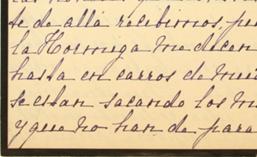 te de allá recibimos, pu
la Hormiga me dicen
hasta en carros de mu
se estan sacando los m
y que no han de para